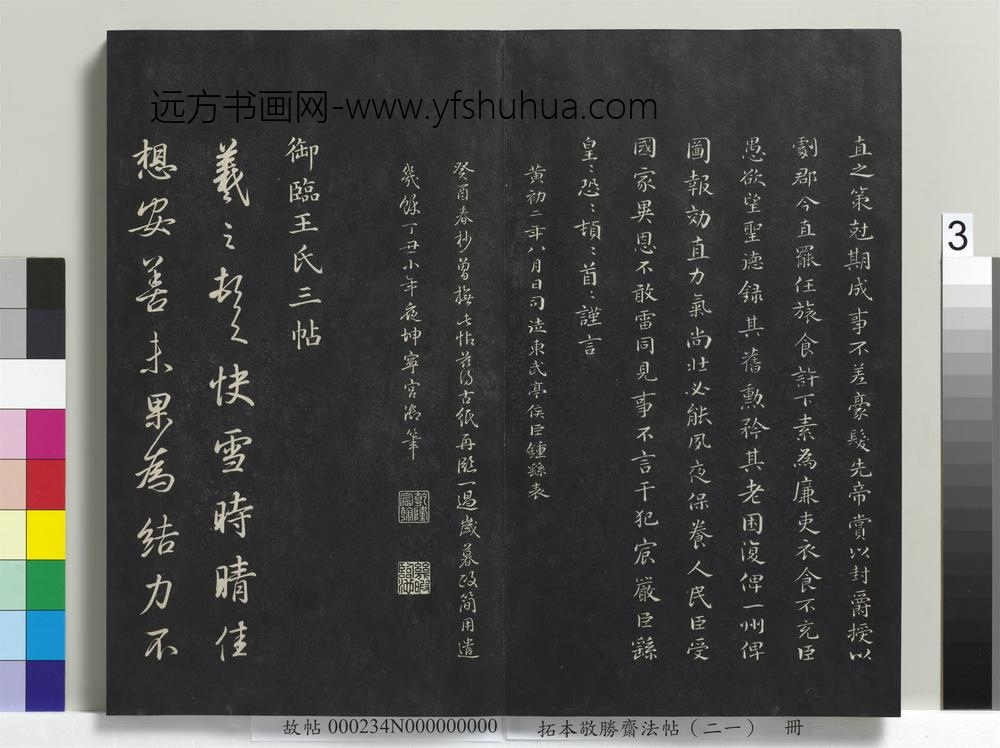 远方书画网-www.yfshuhua.com
直之策尅期成事不差豪髮先帝賞以封爵授以
劇郡今直罷任旅食許下素為廉吏衣食不充臣
愚欲望聖德録其舊勲矜其老困復俾一州俾
圖報効直力氣尚壯必能夙夜保養人民臣受
國家異恩不敢雷同見事不言干犯宸嚴臣繇
皇〻恐〻頓〻首〻謹言
黃初二年八月日司徒東武亭侯臣鍾繇表
癸酉春杪曾撫此帖茲得古紙再臨一過歲暮政簡用遣
幾餘丁丑小年夜坤寧宮御筆
乾隆宸翰
御臨王氏三帖
羲之頓首快雪時晴佳
想安善未果為結力不
3
故帖 000234N000000000
拓本敬勝齋法帖（二一） 冊